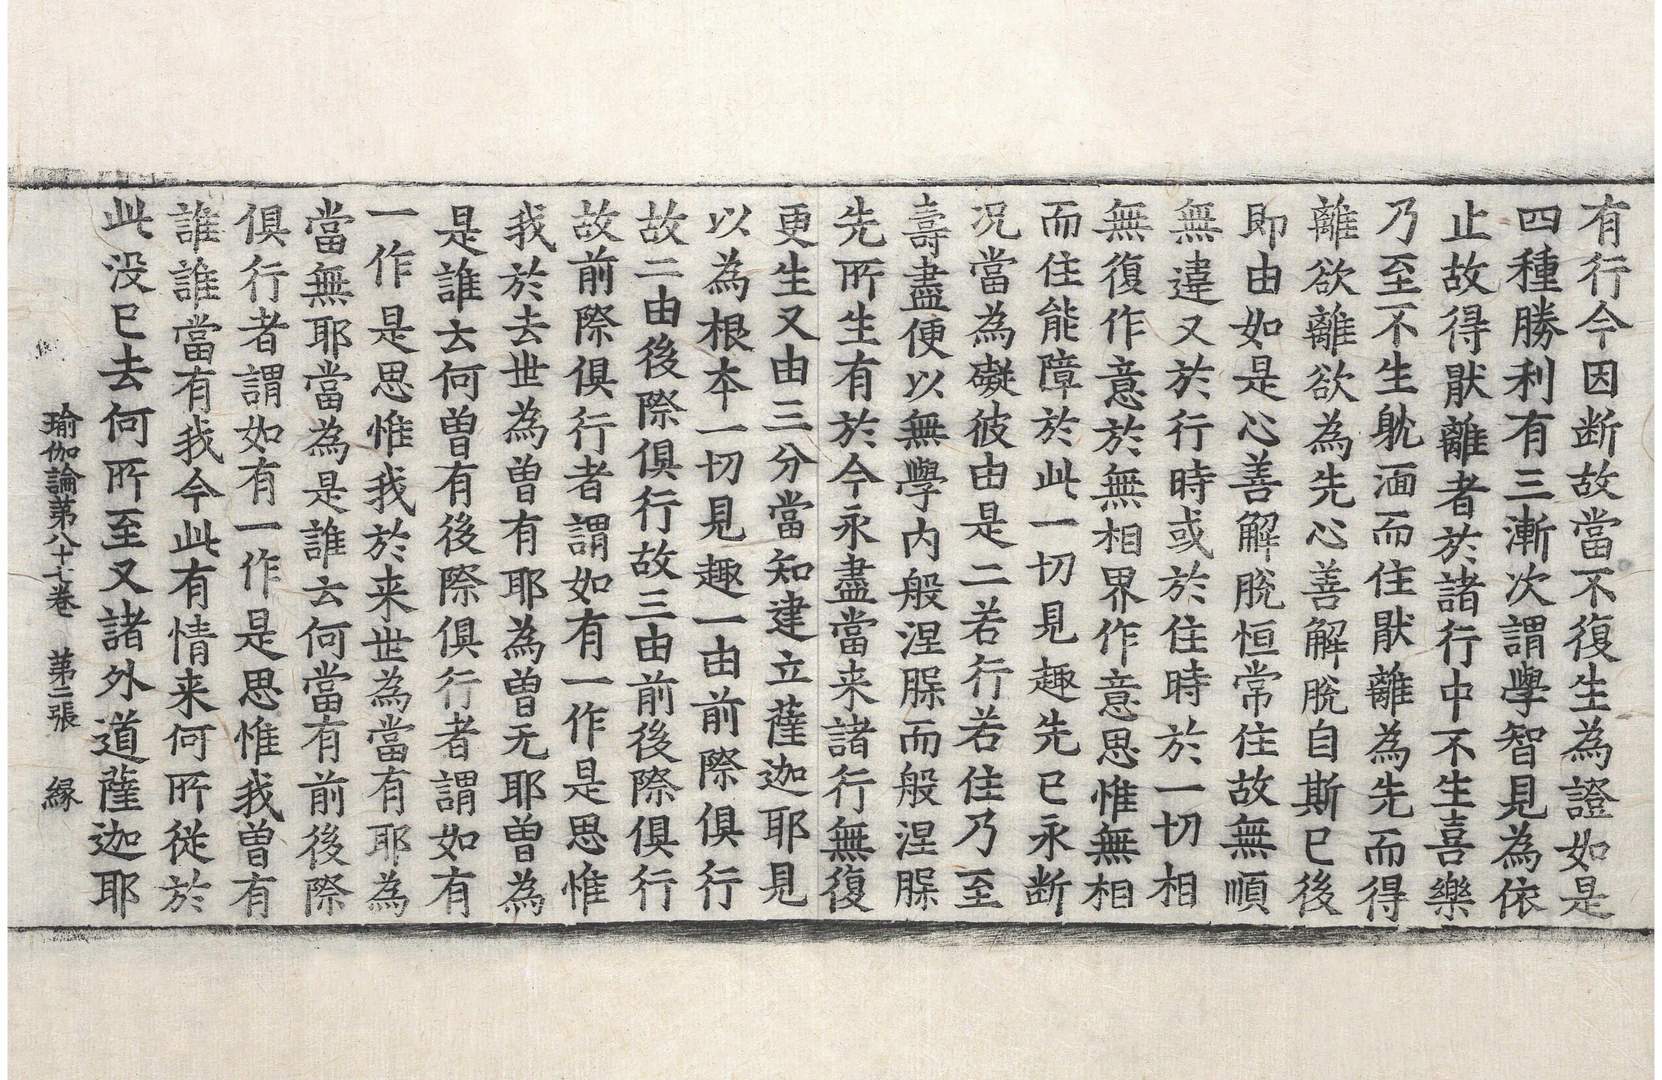 有行今因断故當不復生為證如是
四種勝利有三漸次謂學智見為依
止故得猒離者於諸行中不生喜樂
乃至不生躭湎而住猒離為先而得
離欲離欲為先心善解脫自斯已後
即由如是心善解脫恒常住故無順
無違又於行時或於住時於一切相
無復作意於無相界作意思惟無相
而住能障於此一切見趣先已永断
况當為礙彼由是二若行若住乃至
壽盡便以無學内般涅腂而般涅腂
先所生有於今永盡當来諸行無復
更生又由三分當知建立薩迦耶見
以為根本一切見趣一由前際俱行
故二由後際俱行故三由前後際俱行
故前際俱行者謂如有一作是思惟
我於去世為曾有耶為曾无耶曾為
是誰云何曾有後際俱行者謂如有
一作是思惟我於来世為當有耶為
當無耶當為是誰云何當有前後際
俱行者謂如有一作是思惟我曾有
誰誰當有我今此有情来何所從於
此没已去何所至又諸外道薩迦耶
瑜伽論第八十七卷 第二張 緣